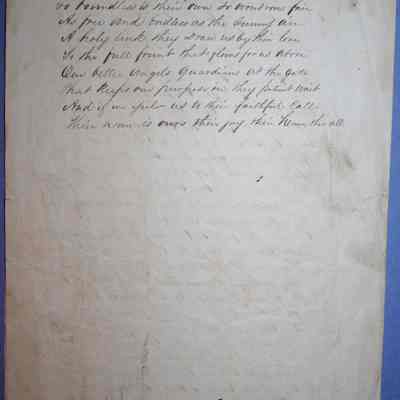 So boundless is their own so wondrous fair
As free and endless as the Sunny air
A holy link they draw us by their love
To the full fount that glows for us above
Our better Angels Guardians at the gate
That keeps our purposes on they patient wait
And if we us to their faithful Call
Their is ours their joy their Heaven their all